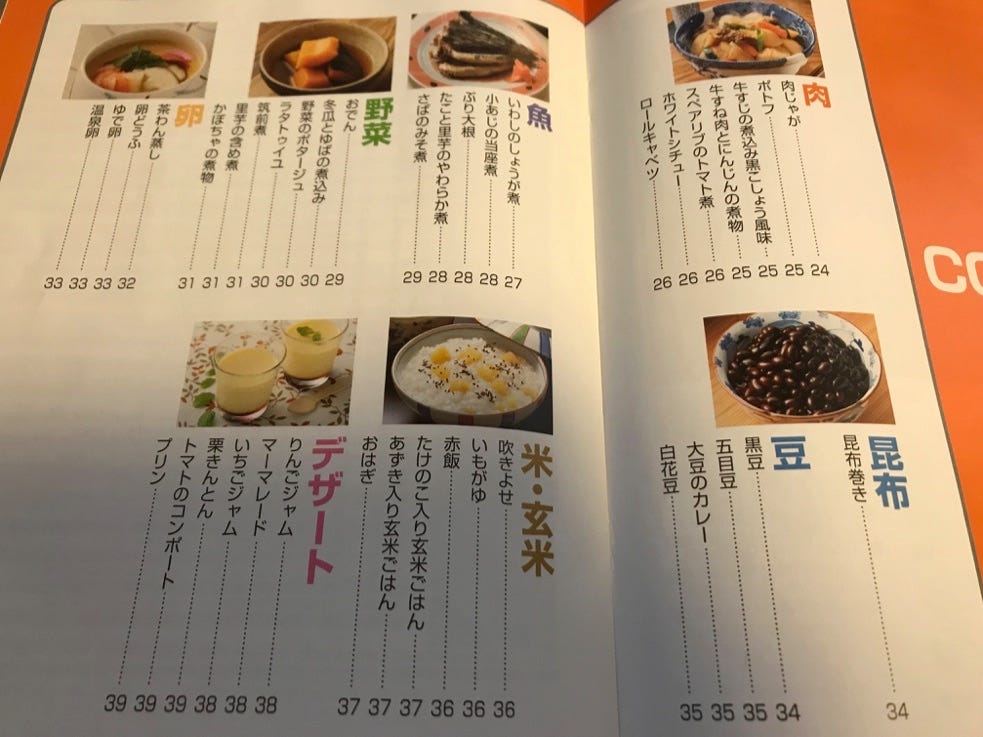 肉
肉じゃが 24
ポトフ 25
牛すじの煮込み黒こしょう風味 25
牛すね肉とにんじんの煮物 25
スペアリブのトマト煮 26
ホワイトシチュー 26
ロールキャベツ 26
魚
いわしのしょうが煮 27
小あじの当座煮 28
ぶり大根 28
たこと里芋のやわらか煮 28
さばのみそ煮 29
野菜
おでん 29
冬瓜とゆばの煮込み 30
野菜のポタージュ 30
ラタトゥイユ 30
筑前煮 31
里芋の含め煮 31
かぼちゃの煮物 31
卵
茶わん蒸し 32
卵どうふ 33
ゆで卵 33
温泉卵 33
昆布
昆布巻き 34
豆
黒豆 34
五目豆 35
大豆のカレー 35
白花豆 35
米・玄米
吹きよせ 36
いもがゆ 36
赤飯 36
たけのこ入り玄米ごはん 37
あずき入り玄米ごはん 37
おはぎ 37
デザート
りんごジャム 38
マーマレード 38
いちごジャム 38
栗きんとん 39
トマトのコンポート 39
プリン 39